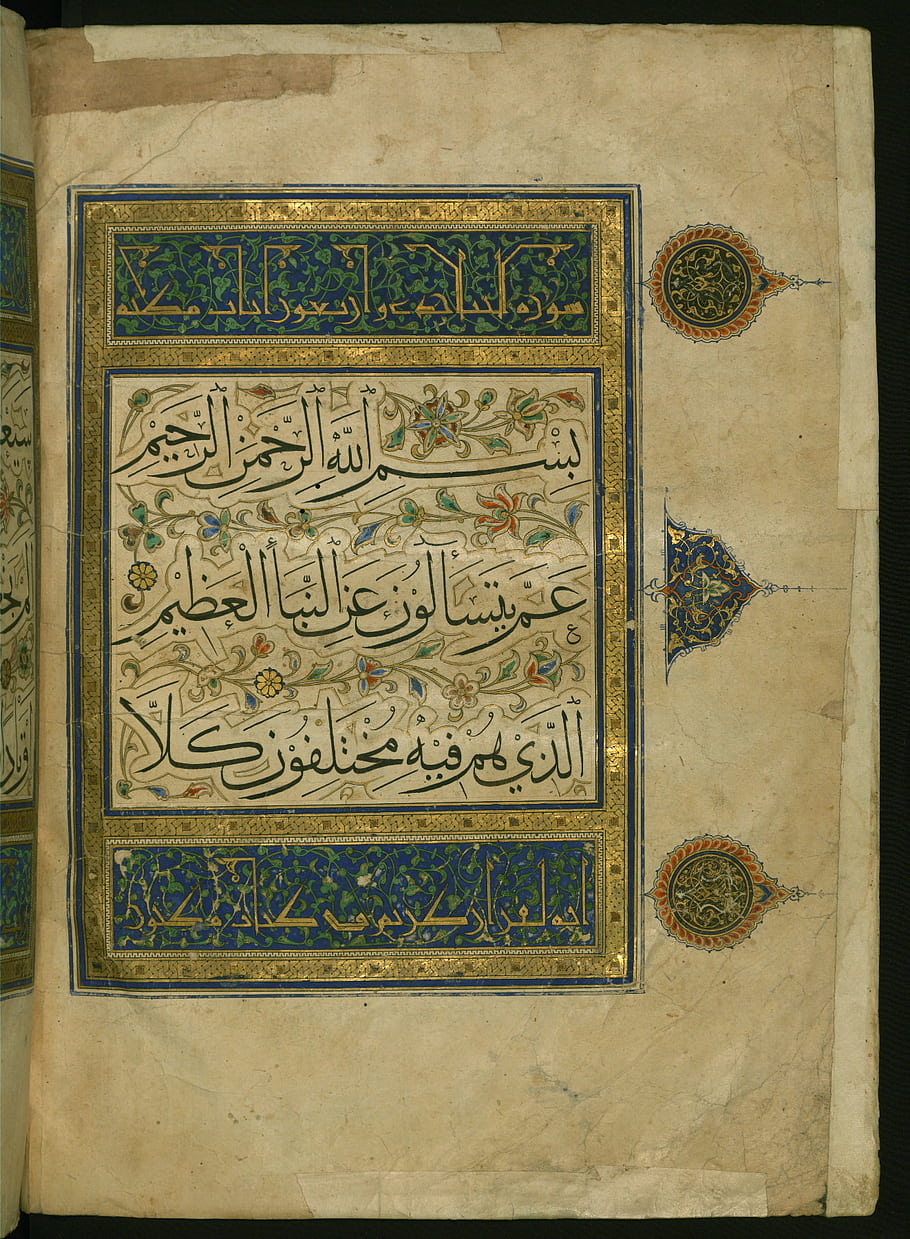 سورة النبا احدى واربعون ايات مكية
بِسْمِ اللَّهِ الرَّحْمَنِ الرَّحِيمِ
عَمَّ يَتَسَألُونَ عَنِ النَّبَأِ الْعَظِيمِ
ع
الَّذِي هُمْ فِيْهِ مُخْتَلِفُوْنَ كَلَّا
انه لقران كريم في كتاب مكنون